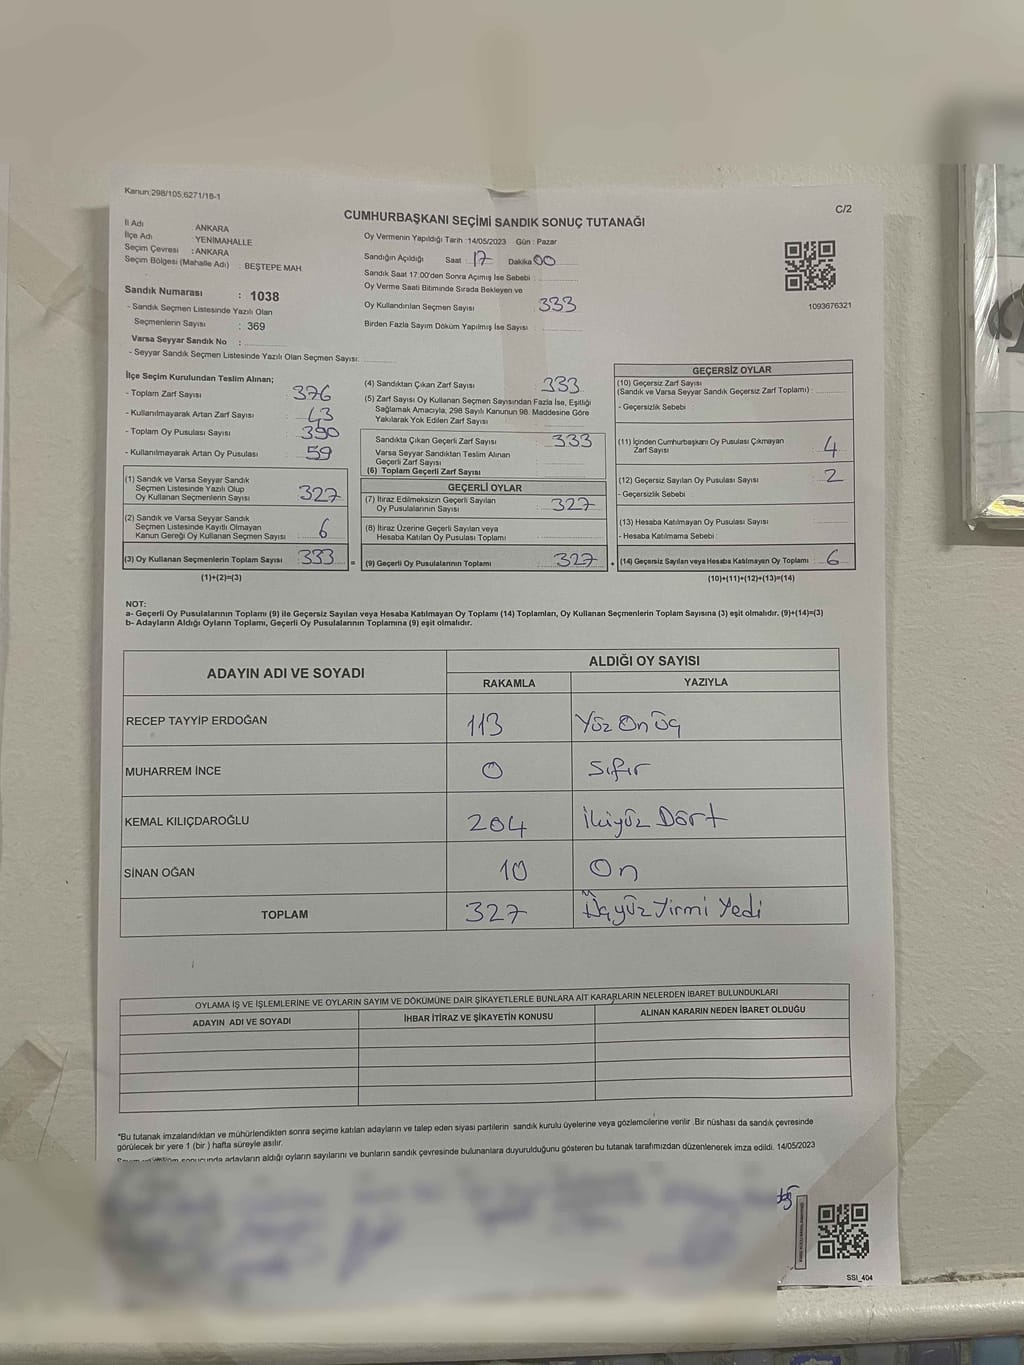 Kanun;298/105,6271/18-1
C/2
CUMHURBAŞKANI SEÇİMİ SANDIK SONUÇ TUTANAĞI
İl Adı ANKARA
İlçe Adı : YENİMAHALLE
Seçim Çevresi : ANKARA
Seçim Bölgesi (Mahalle Adı) : BEŞTEPE MAH.
Sandık Numarası : 1038
- Sandık Seçmen Listesinde Yazılı Olan
Seçmenlerin Sayısı : 369
Varsa Seyyar Sandık No :
- Seyyar Sandık Seçmen Listesinde Yazılı Olan Seçmen Sayısı:
Oy Vermenin Yapıldığı Tarih :14/05/2023 Gün : Pazar
Sandığın Açıldığı Saat : 17 Dakika 00
Sandık Saat 17:00'den Sonra Açımış İse Sebebi :
Oy Verme Saati Bitiminde Sırada Bekleyen ve
Oy Kullandırılan Seçmen Sayısı 333
Birden Fazla Sayım Döküm Yapılmış İse Sayısı
1093676321
İlçe Seçim Kurulundan Teslim Alınan;
- Toplam Zarf Sayısı 376
- Kullanılmayarak Artan Zarf Sayısı 43
- Toplam Oy Pusulası Sayısı 390
- Kullanılmayarak Artan Oy Pusulası 59
(1) Sandık ve Varsa Seyyar Sandık
Seçmen Listesinde Yazılı Olup
Oy Kullanan Seçmenlerin Sayısı 327
(2) Sandık ve Varsa Seyyar Sandık
Seçmen Listesinde Kayıtlı Olmayan
Kanun Gereği Oy Kullanan Seçmen Sayısı 6
(3) Oy Kullanan Seçmenlerin Toplam Sayısı 333 =
(1)+(2)=(3)
(4) Sandıktan Çıkan Zarf Sayısı 333
(5) Zarf Sayısı Oy Kullanan Seçmen Sayısından Fazla İse, Eşitliği
Sağlamak Amacıyla, 298 Sayılı Kanunun 98. Maddesine Göre
Yakılarak Yok Edilen Zarf Sayısı
Sandıkta Çıkan Geçerli Zarf Sayısı 333
Varsa Seyyar Sandıktan Teslim Alınan
Geçerli Zarf Sayısı
(6) Toplam Geçerli Zarf Sayısı
GEÇERLİ OYLAR
(7) İtiraz Edilmeksizin Geçerli Sayılan
Oy Pusulalarının Sayısı 327
(8) İtiraz Üzerine Geçerli Sayılan veya
Hesaba Katılan Oy Pusulası Toplamı
(9) Geçerli Oy Pusulalarının Toplamı 327 +
GEÇERSİZ OYLAR
(10) Geçersiz Zarf Sayısı
(Sandık ve Varsa Seyyar Sandık Geçersiz Zarf Toplamı)
- Geçersizlik Sebebi
(11) İçinden Cumhurbaşkanı Oy Pusulası Çıkmayan
Zarf Sayısı 4
(12) Geçersiz Sayılan Oy Pusulası Sayısı 2
- Geçersizlik Sebebi
(13) Hesaba Katılmayan Oy Pusulası Sayısı
- Hesaba Katılmama Sebebi
(14) Geçersiz Sayılan veya Hesaba Katılmayan Oy Toplamı 6
(10)+(11)+(12)+(13)=(14)
NOT:
a- Geçerli Oy Pusulalarının Toplamı (9) ile Geçersiz Sayılan veya Hesaba Katılmayan Oy Toplamı (14) Toplamları, Oy Kullanan Seçmenlerin Toplam Sayısına (3) eşit olmalıdır. (9)+(14)=(3)
b- Adayların Aldığı Oyların Toplamı, Geçerli Oy Pusulalarının Toplamına (9) eşit olmalıdır.
ADAYIN ADI VE SOYADI ALDIĞI OY SAYISI
RAKAMLA YAZIYLA
RECEP TAYYİP ERDOĞAN 113 Yüz On üç
MUHARREM İNCE 0 Sıfır
KEMAL KILIÇDAROĞLU 204 İkiyüz Dört
SİNAN OĞAN 10 On
TOPLAM 327 Üçyüz Yirmi Yedi
OYLAMA İŞ VE İŞLEMLERİNE VE OYLARIN SAYIM VE DÖKÜMÜNE DAİR ŞİKAYETLERLE BUNLARA AİT KARARLARIN NELERDEN İBARET BULUNDUKLARI
ADAYIN ADI VE SOYADI İHBAR İTİRAZ VE ŞİKAYETİN KONUSU ALINAN KARARIN NEDEN İBARET OLDUĞU
*Bu tutanak imzalandıktan ve mühürlendikten sonra seçime katılan adayların ve talep eden siyasi partilerin sandık kurulu üyelerine veya gözlemcilerine verilir .Bir nüshası da sandık çevresinde
görülecek bir yere 1 (bir ) hafta süreyle asılır.
sonucunda adayların aldığı oyların sayılarını ve bunların sandık çevresinde bulunanlara duyurulduğunu gösteren bu tutanak tarafımızdan düzenlenerek imza edildi. 14/05/2023
SSI_404